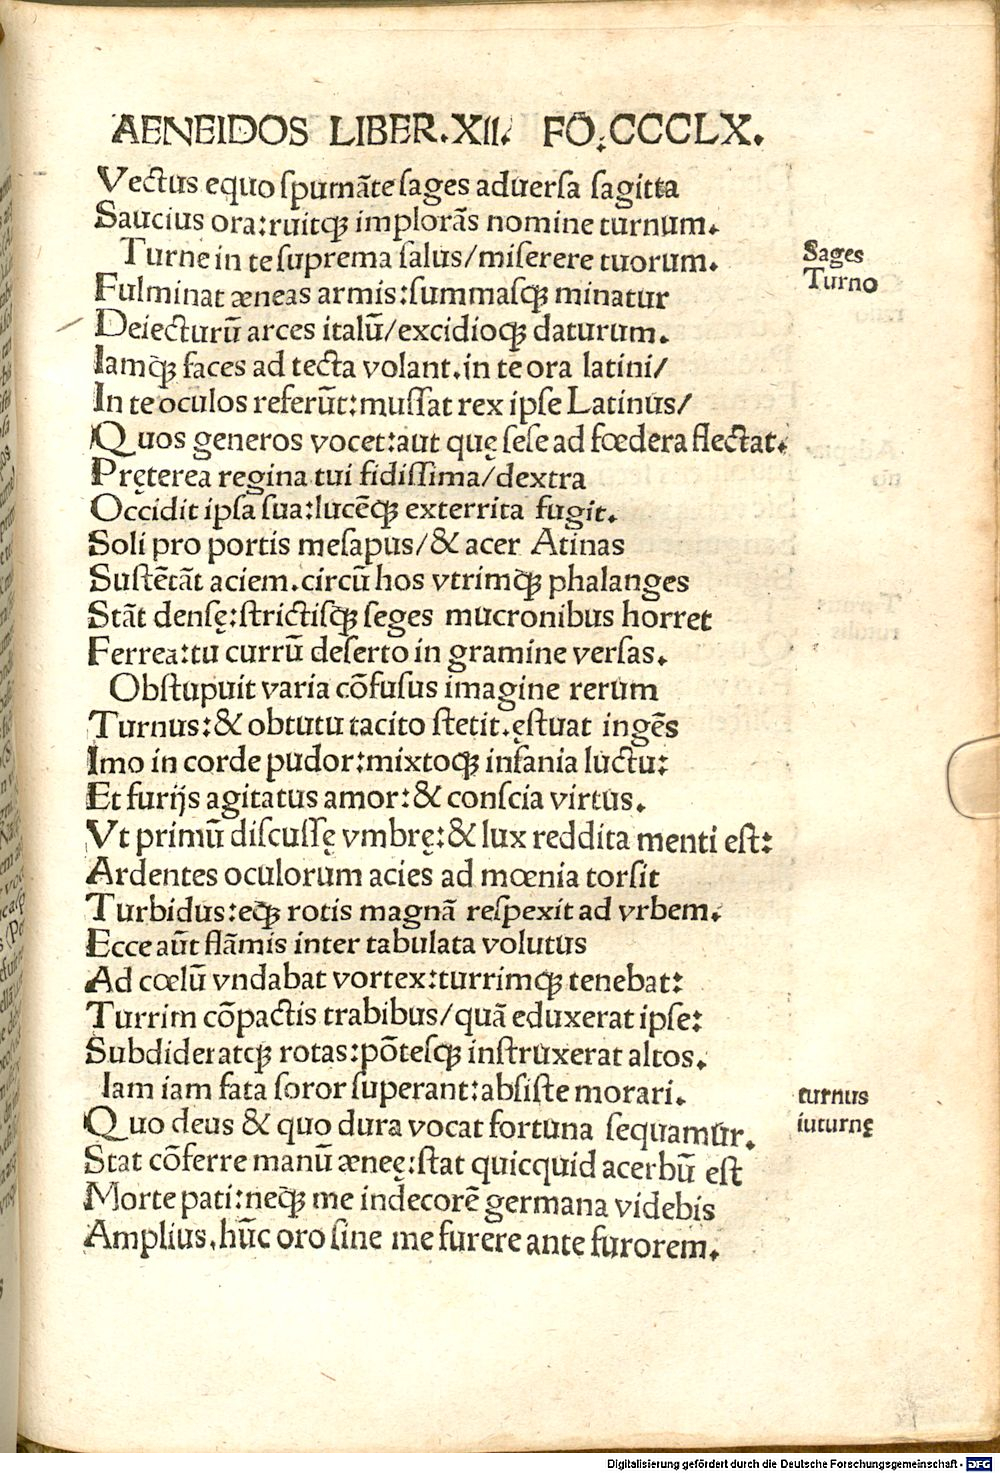 AENEIDOS LIBER.XII. FO.CCCLX.
Vectus equo ſpumāte ſages aduerſa ſagitta
Saucius ora:ruitqꝫ implorās nomine turnum.
Turne in te ſuprema ſalus/miſerere tuorum.
Sages
Turno
Fulminat æneas armis:ſummaſqꝫ minatur
Deiecturū arces italū/excidioqꝫ daturum.
Iamqꝫ faces ad tecta volant.in te ora latini/
In te oculos referūt:muſſat rex ipſe Latinus/
Quos generos vocet:aut quę ſeſe ad fœdera flectat.
Pręterea regina tui fidiſſima/dextra
Occidit ipſa ſua:lucēqꝫ exterrita fugit.
Soli pro portis meſapus/& acer Atinas
Suſtētāt aciem.circū hos vtrimqꝫ phalanges
Stāt denſę:ſtrictiſqꝫ ſeges mucronibus horret
Ferrea:tu currū deſerto in gramine verſas.
Obſtupuit varia cōfuſus imagine rerum
Turnus:& obtutu tacito ſtetit.ęſtuat ingēs
Imo in corde pudor:mixtoqꝫ inſania luctu:
Et furijs agitatus amor:& conſcia virtus.
Vt primū diſcuſſę vmbrę:& lux reddita menti eſt:
Ardentes oculorum acies ad mœnia torſit
Turbidus:eqꝫ rotis magnā reſpexit ad vrbem.
Ecce aūt flāmis inter tabulata volutus
Ad cœlū vndabat vortex:turrimqꝫ tenebat:
Turrim cōpactis trabibus/quā eduxerat ipſe:
Subdideratqꝫ rotas:pōteſqꝫ inſtruxerat altos.
Iam iam fata ſoror ſuperant:abſiſte morari.
turnus
iuturnę
Quo deus & quo dura vocat fortuna ſequamur.
Stat cōferre manū æneę:ſtat quicquid acerbū eſt
Morte pati:neqꝫ me indecorē germana videbis
Amplius.hūc oro ſine me furere ante furorem.
Digitalisierung gefördert durch die Deutsche Forschungsgemeinschaft - DFG